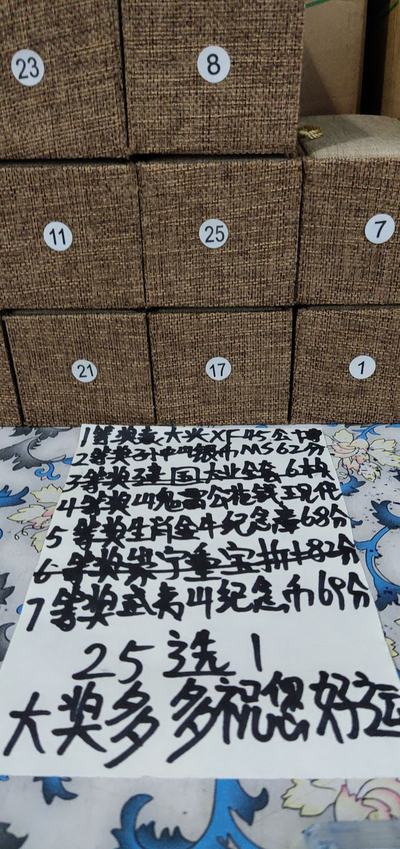 23
8
11
25
7
21
17
1
1等奖袁大头XF45公博
2等奖孙中山银币MS62分
3等奖建国大业全套6枚
4等奖山鬼雷公花钱
5等奖生肖金牛纪念币68分
6等奖崇宁重宝折十82分
7等奖武夷山纪念币69分
25选1
大奖多多祝您好运